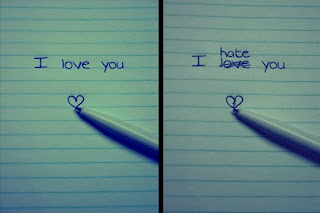 I love you
hate
I love you